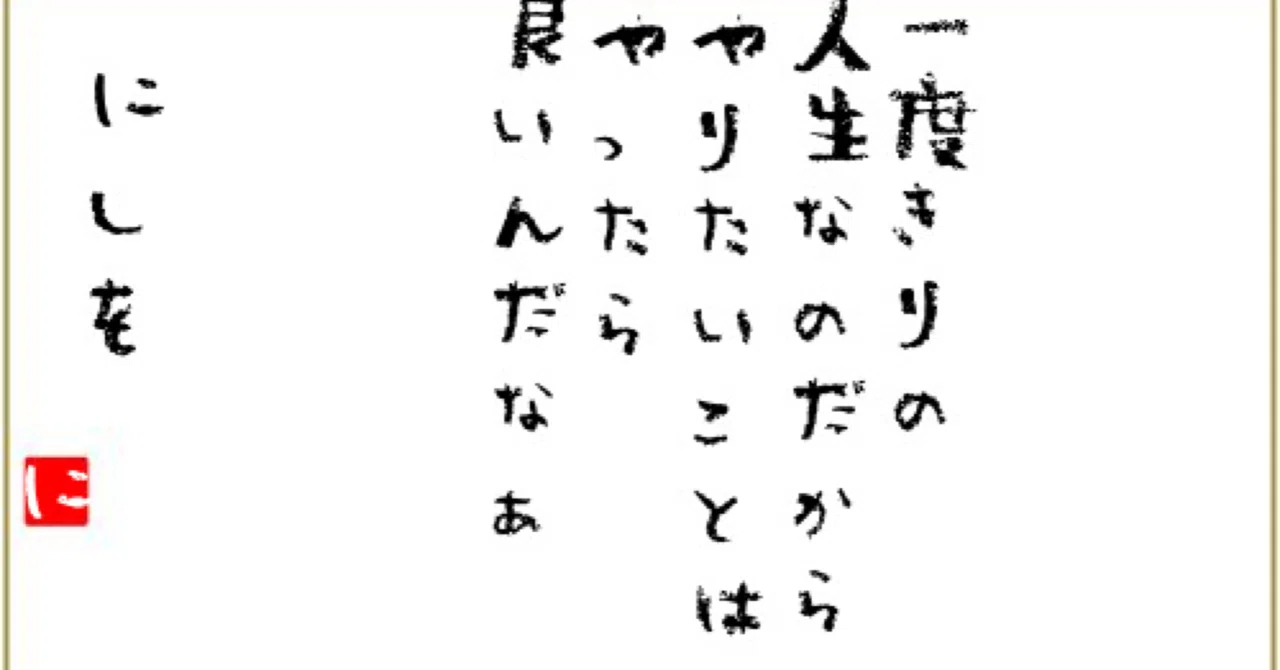 一度きりの
人生なのだから
やりたいことは
やったら
良いんだなぁ
にしを
に